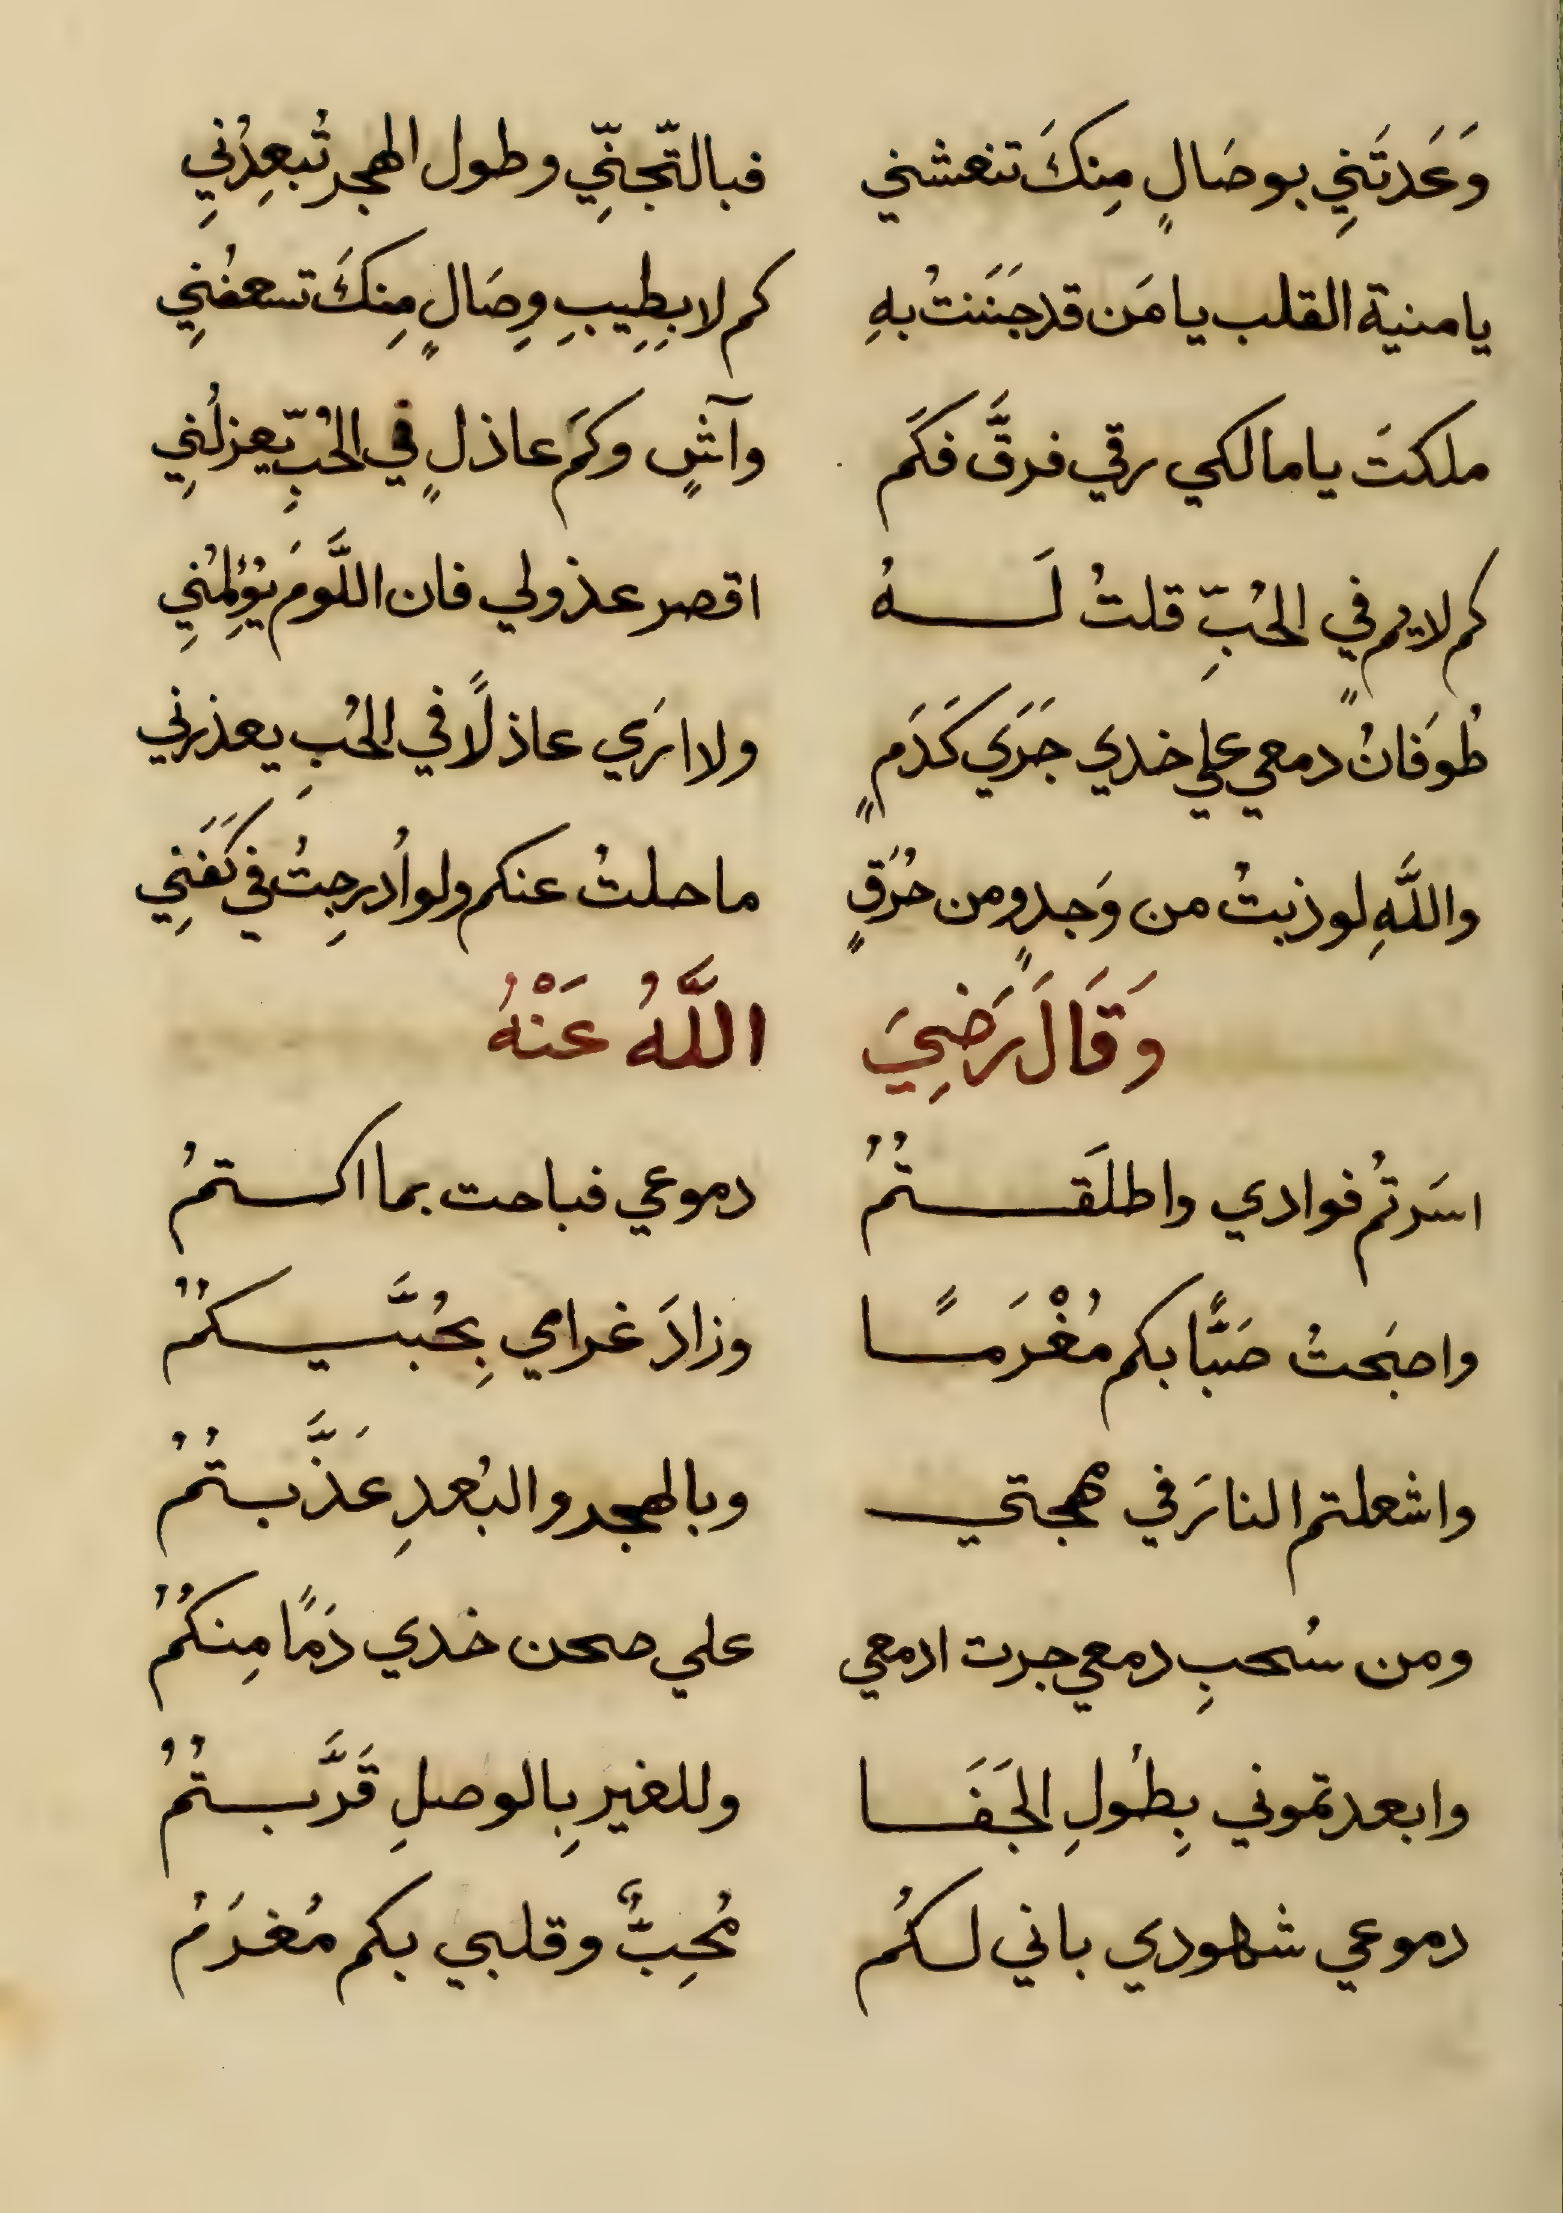 وَعَدتَنِي بوصَالٍ مِنكَ تنعشني فبالتّجنِّي وطول الهجر تُبعِدُنيِ
يا منية القلب يا مَن قد جَنَنتُ بهِ كم لا بطِيبِ وِصَالٍ مِنكَ تسعفُنِي
ملكتَ يا مالكي رقي فرقَّ فكَم وآشٍ وكَم عاذلٍ في الحُبِّ يعزلُنِي
كم لايمٍ في الحُبِّ قلتُ لَهُ اقصر عذولي فان اللَّومَ يُؤلِمُنِي
طُوفَانُ دمعي علي خدي جَرَي كَدَمٍ ولا ارَي عاذلًا في الحُبِ يعذرني
واللَّهِ لو ذبتُ من وَجدٍ ومن حُرَقٍ ما حلتُ عنكم ولو اُدرجِتُ في كَفَنِي
وَقَالَ رَضِيَ اللَّهُ عَنْهُ
اسَرتُم فوادي واطلَقتُمُ دموعي فباحت بما اكتمُ
واصبَحتُ صَبًّا بكم مُغْرَمًا وزادَ غرامي بِحُبَّيكُمُ
واشعلتم النارَ في مهجتي وبالهجر والبُعدِ عَذَّبتُمُ
ومن سُحبِ دمعي جرت ادمعي علي صحن خدي دَمًا مِنكُمُ
وابعدتموني بِطُولِ الجَفَا وللغير بِالوصلِ قَرَّبتُمُ
دموعي شهودي باني لكُم مُحِبٌّ وقلبي بكم مُغرَمُ